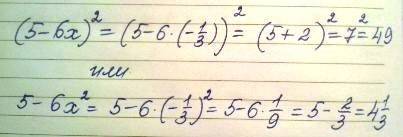 (5-6x)² = (5-6·(-1/3))² = (5+2)² = 7² = 49
или
5-6x² = 5-6·(-1/3)² = 5-6·1/9 = 5-2/3 = 4 1/3